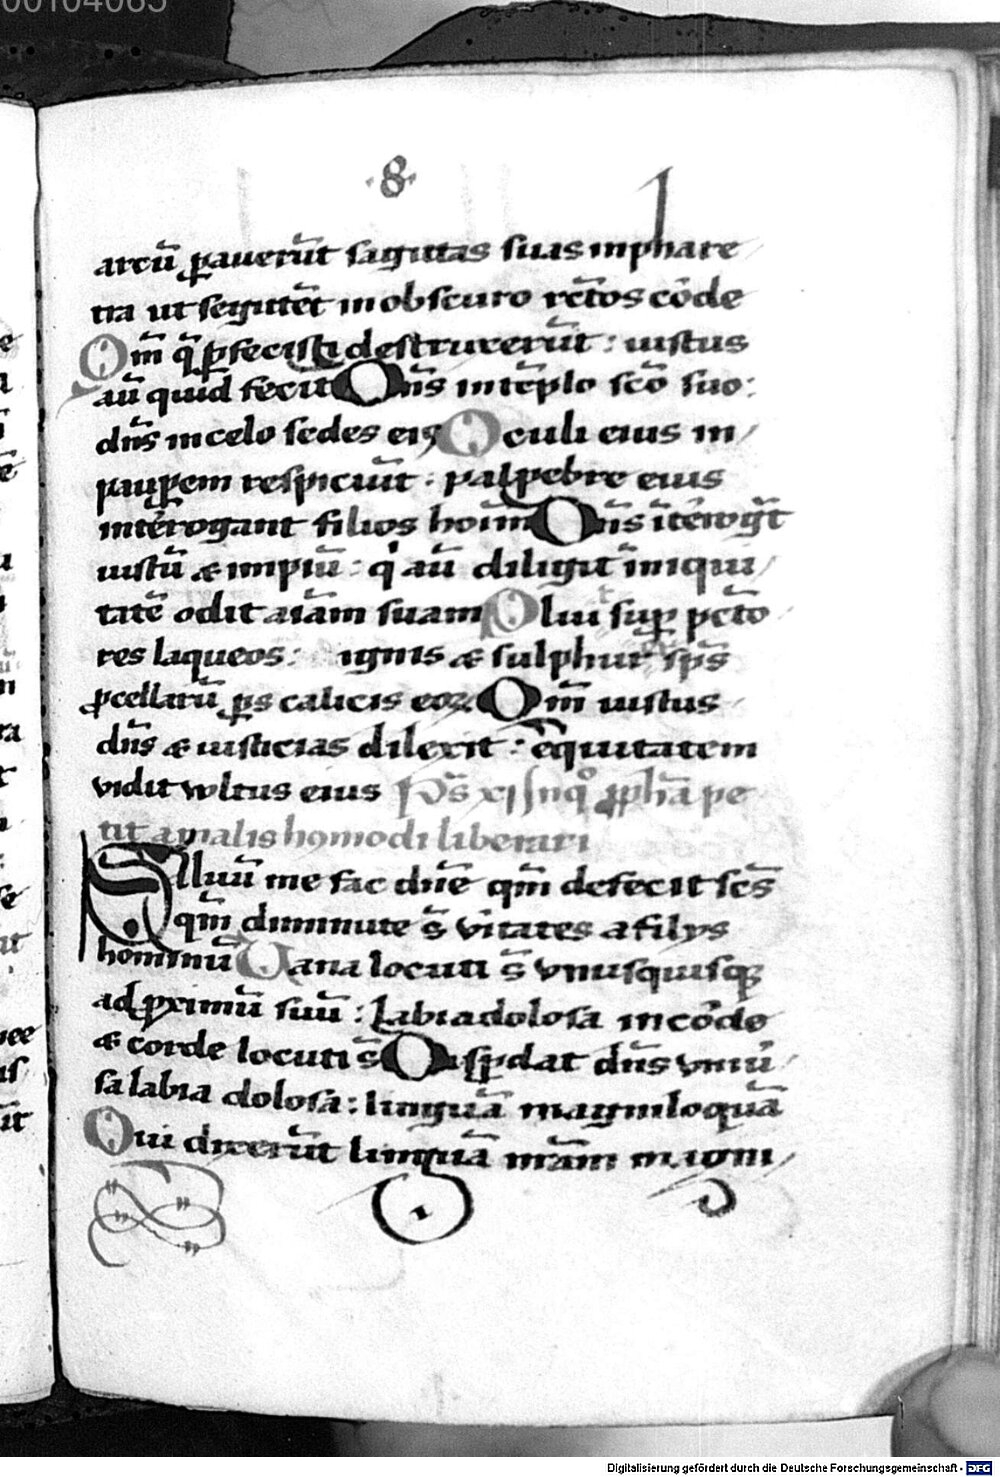 00104065
·8·
arcū ꝑauerūt sagittas suas in phare
tra ut segittēt in obscuro rc̄tos cōde
Qm̄ q̄ ꝑfecisti destruxerūt : iustus
aū quid fecit Dn̄s in tēplo sc̄o suo :
dn̄s in celo sedes eiꝰ Oculi eius in
pauꝑem respiciūt : palpebre eius
intērogant filios hoīm Dn̄s ītēroḡt
iustū ⁊ impiū : q' aū diligit īniqui
tatē odit aīam suam Pluī suꝑ pc̄to
res laqueos : ignis ⁊ sulphur sp̄s
ꝓcellarū ꝑs calicis eoꝝ Qm̄ iustus
dn̄s ⁊ iusticias dilexit : ēquitatem
vidit wltus eius Ps̄ xi In qͦ ꝓph̄a pe
tit a malis homo di liberari
Saluū me fac dn̄e qm̄ defecit sc̄s
qm̄ diminute s̄ vītates a filys
hominū Uana locuti s̄ vnusquisqꝫ
ad ꝓximū suū : Labia dolosa in cōde
⁊ corde locuti s̄ Disꝑdat dn̄s vniū
sa labia dolosa : linguā magniloquā
Qui dixerūt linguā nr̄am magni
Digitalisierung gefördert durch die Deutsche Forschungsgemeinschaft - DFG